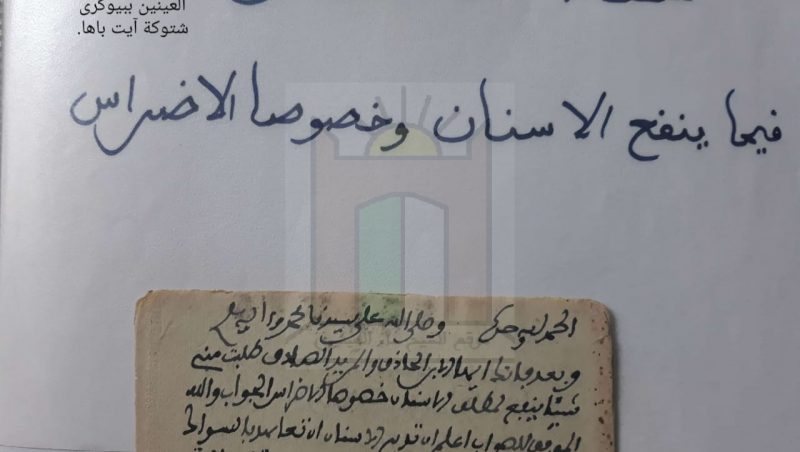 العينين ببيوكرى
شتوكة آيت باها.
فيما ينفع الاسنان وخصوصا الاضراس
الحمد لله وحده وصلى الله على سيدنا محمد وآله
وبعد فانك ايها الابن الحاذق والمريد الصادق طلبت مني
شيئا ينفع لمطلق الاسنان خصوصا الاضراس الجواب والله
الموفق للصواب اعلم ان تدبير الاسنان ان تعاهد بالسواك